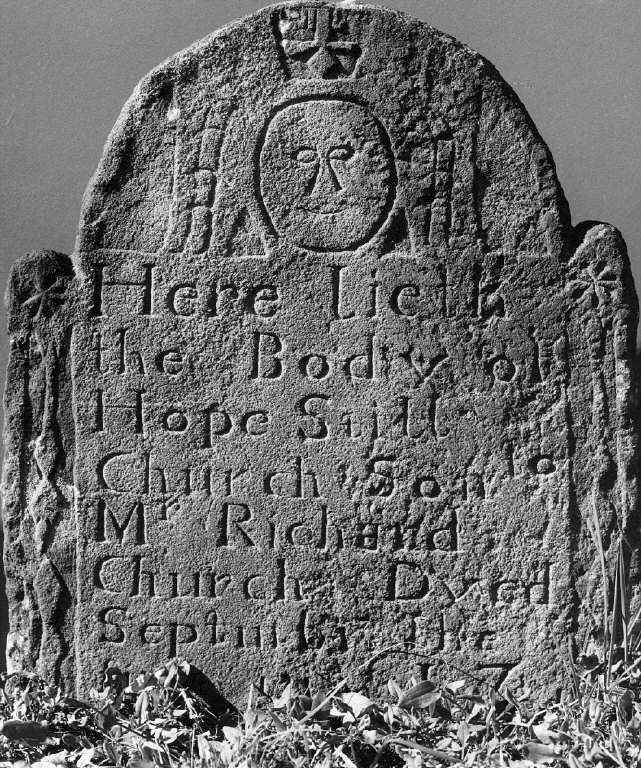 Here lieth
the Body of
Hope Still
Church Son to
Mr Richard
Church Dyed
Septmbr The